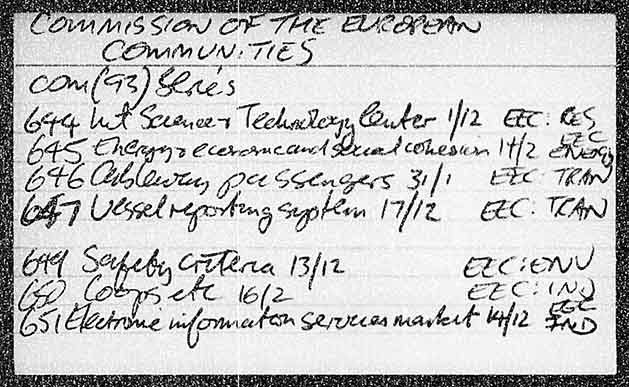 COMMISSION OF THE EUROPEAN
COMMUNITIES
COM(93) Series
644 Int Science + Technology Center 1/12 EEC: RES
645 Energy + economic and social cohesion 14/2 EEC ENERGY
646 Cableway passengers 31/1 EEC: TRAN
647 Vessel reporting system 17/12 EEC: TRAN
649 Safety criteria 13/12 EEC: ENV
650 Coops etc 16/2 EEC: IND
651 Electronic information services market 14/12 EEC IND